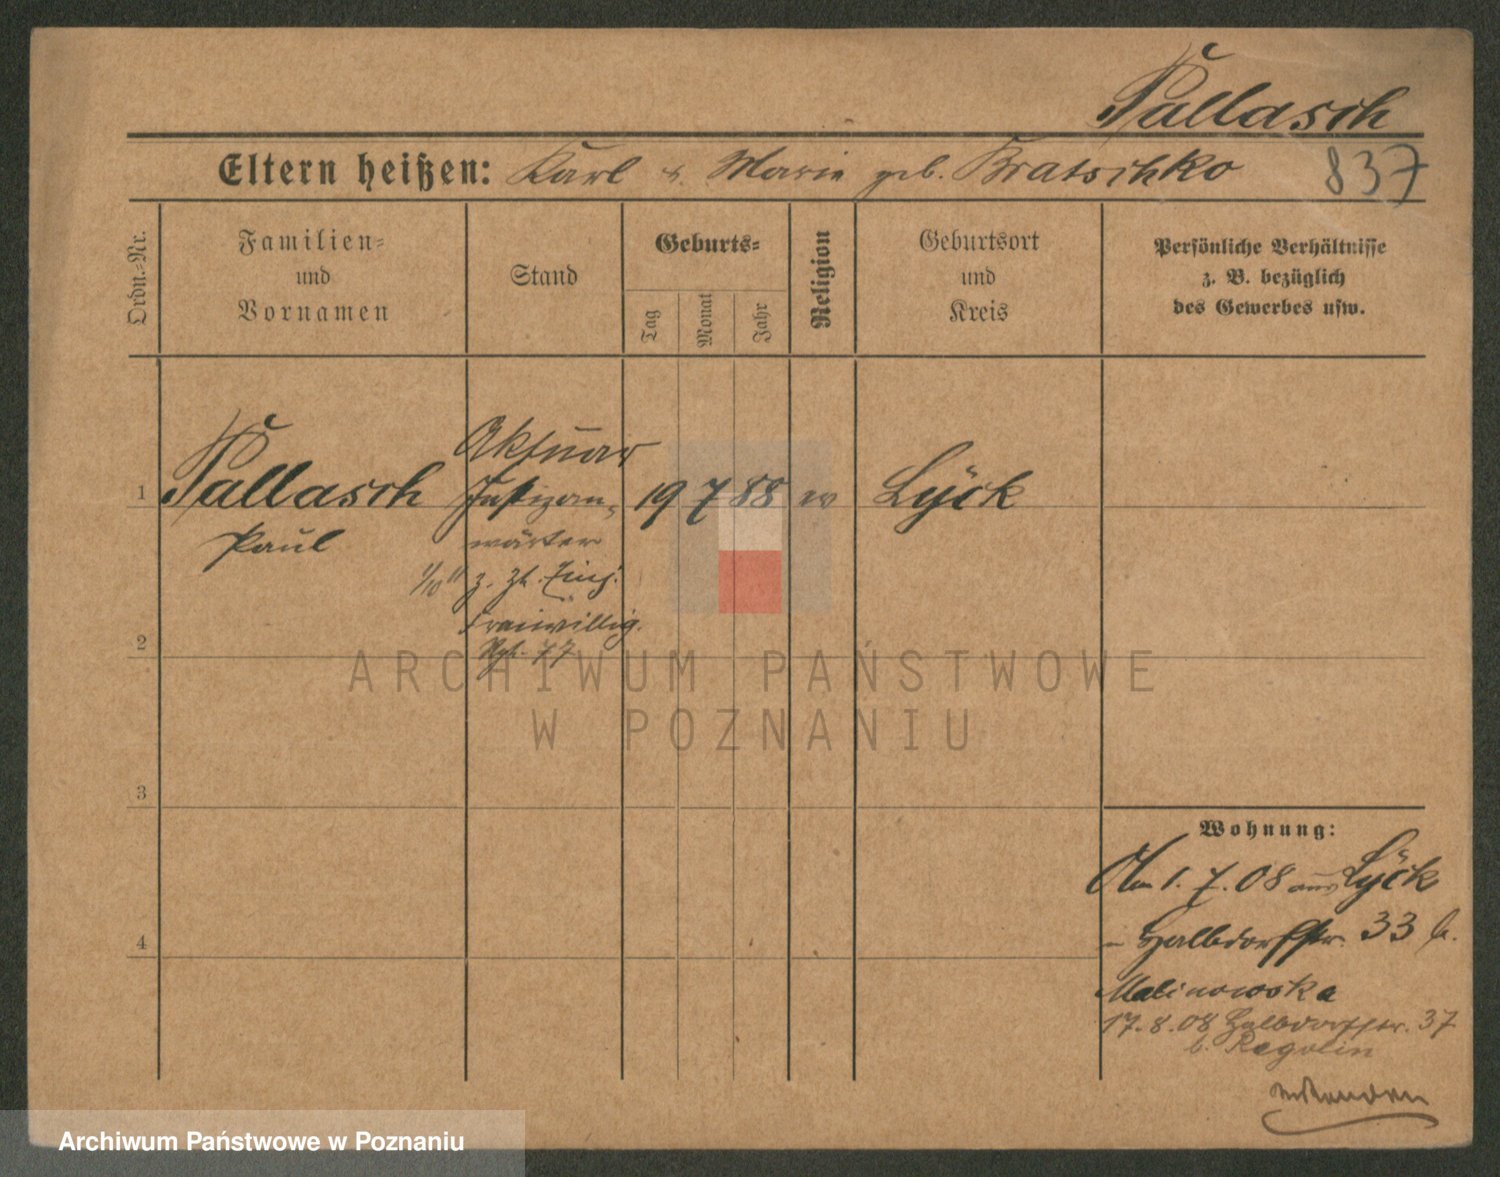 Pallasch
Eltern heißen: Karl u. Marie geb. Bratschko 837
Ordn.-Nr.
Familien-
und
Vornamen
Stand
Geburts-
Tag
Monat
Jahr
Religion
Geburtsort
und
Kreis
Persönliche Verhältnisse
z. B. bezüglich
des Gewerbes usw.
Aktuar
1 Pallasch Justizan- 19 7 88 ev Lyck
Paul wärter
1/10 11 z. Zt. Einj.
Freiwillig.
2
Rgt. 77
ARCHIWUM PAŃSTWOWE
W POZNANIU
3
Wohnung:
Am 1.7.08 aus Lyck
4
Halbdorfstr. 33 b.
Malinowska
17.8.08 Halbdorfstr. 37
b. Regulin
Archiwum Państwowe w Poznaniu